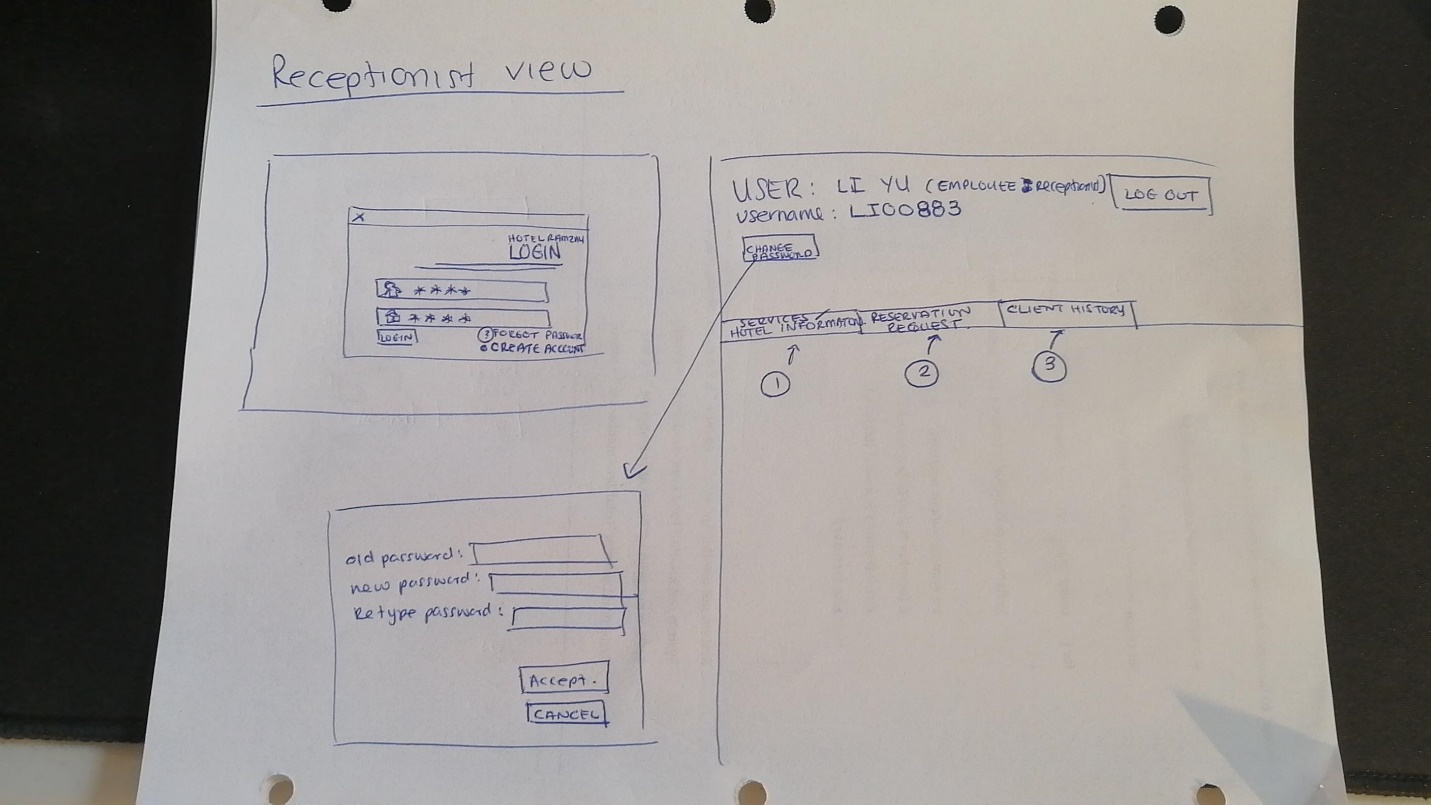 Receptionist view
X
HOTEL RAMZAY
LOGIN
****
****
LOGIN
? FORGOT
CREATE ACCOUNT
USER: LI YU (EMPLOYEE Receptionist)
LOG OUT
username: LI00883
CHANGE
PASSWORD
SERVICES /
HOTEL INFORMATION
RESERVATION
REQUEST.
CLIENT HISTORY
1
2
3
old password:
new password:
Retype password:
Accept.
CANCEL